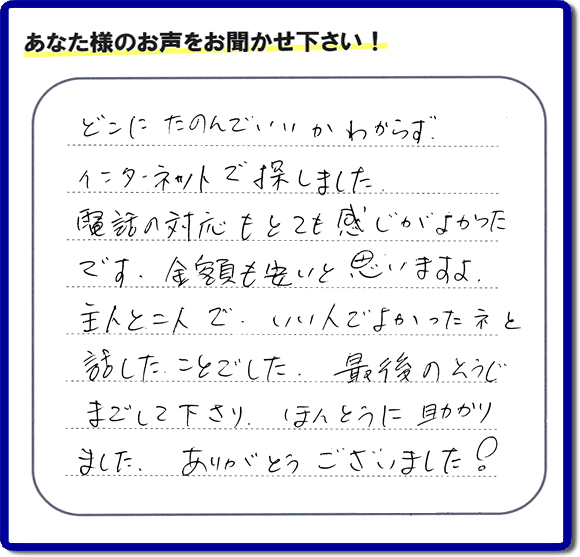 あなた様のお声をお聞かせ下さい！
どこに たのんでいいか わからず.
インターネットで探しました.
電話の対応もとても感じがよかった
です. 金額も安いと思いますよ.
主人と二人で. いい人でよかったネと
話した.ことでした. 最後のそうじ
までして下さり. ほんとうに助かり
ました. ありがとうございました!